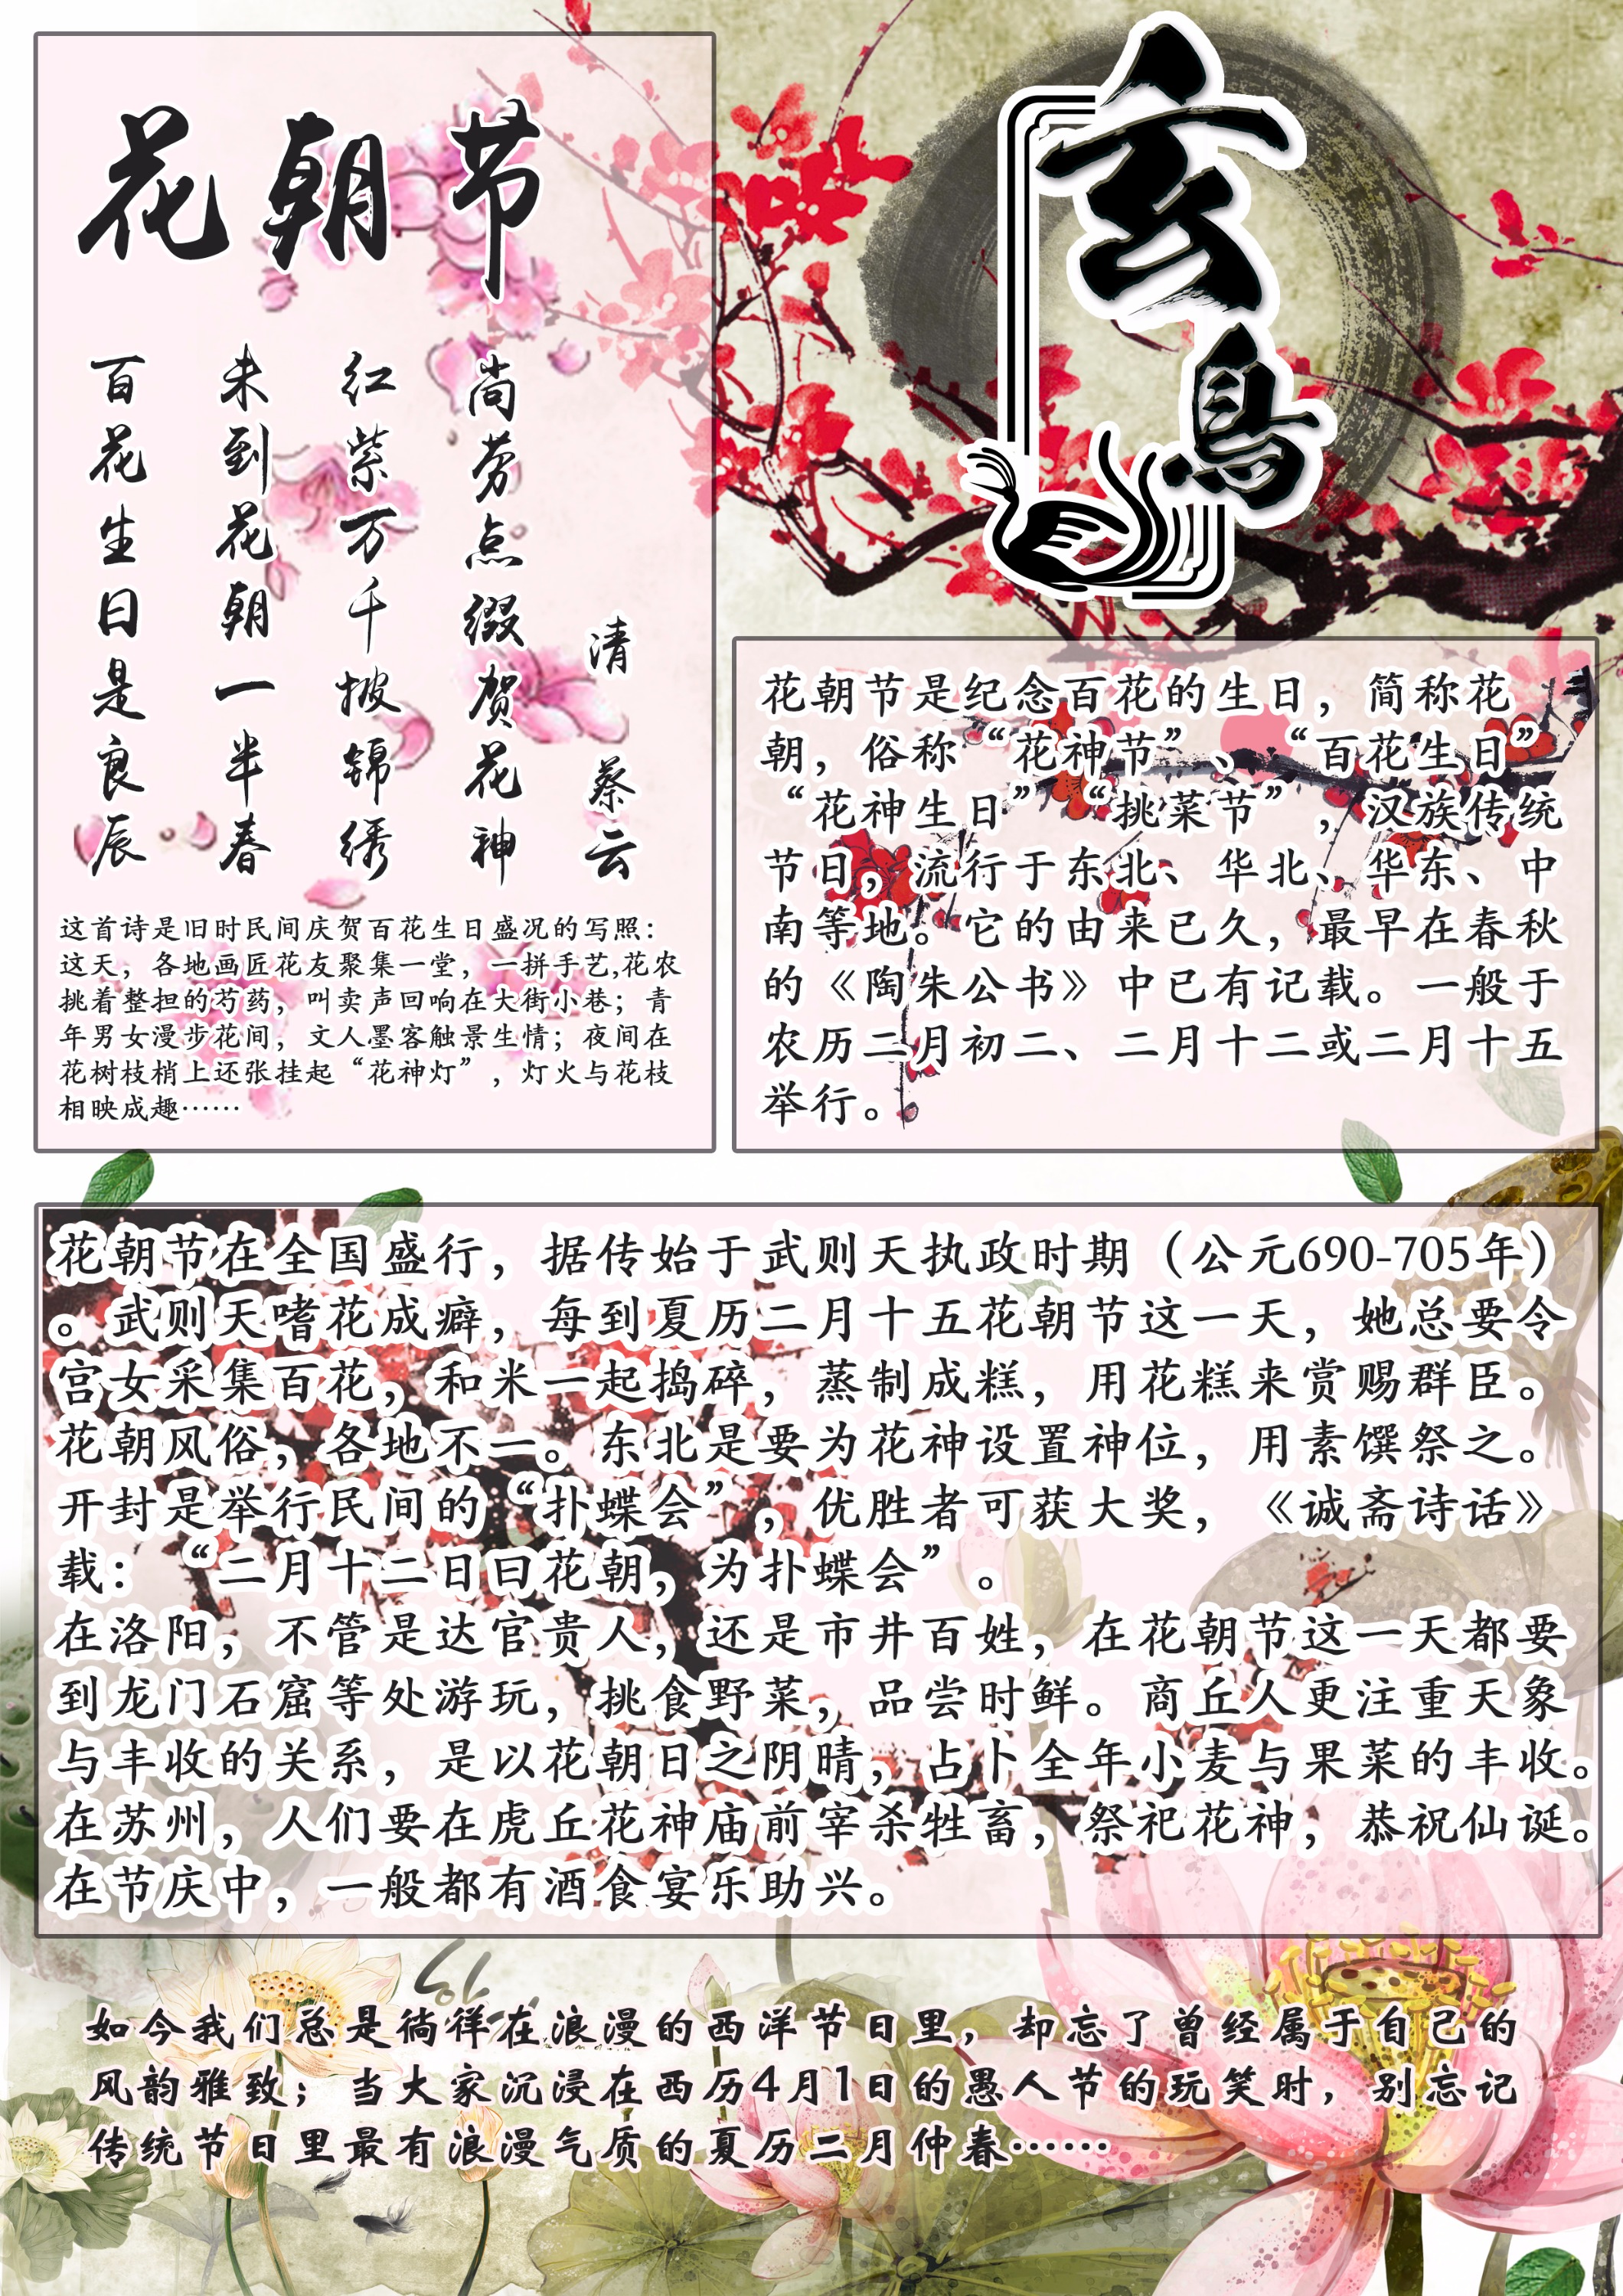 花朝节
百花生日是良辰
未到花朝一半春
红紫万千披锦绣
尚劳点缀贺花神
清 蔡云
这首诗是旧时民间庆贺百花生日盛况的写照：
这天，各地画匠花友聚集一堂，一拼手艺,花农
挑着整担的芍药，叫卖声回响在大街小巷；青
年男女漫步花间，文人墨客触景生情；夜间在
花树枝梢上还张挂起“花神灯”，灯火与花枝
相映成趣……
玄鸟
花朝节是纪念百花的生日，简称花
朝，俗称“花神节”、“百花生日”
“花神生日”“挑菜节”，汉族传统
节日，流行于东北、华北、华东、中
南等地。它的由来已久，最早在春秋
的《陶朱公书》中已有记载。一般于
农历二月初二、二月十二或二月十五
举行。
花朝节在全国盛行，据传始于武则天执政时期（公元690-705年）
。武则天嗜花成癖，每到夏历二月十五花朝节这一天，她总要令
宫女采集百花，和米一起捣碎，蒸制成糕，用花糕来赏赐群臣。
花朝风俗，各地不一。东北是要为花神设置神位，用素馔祭之。
开封是举行民间的“扑蝶会”，优胜者可获大奖，《诚斋诗话》
载：“二月十二日曰花朝，为扑蝶会”。
在洛阳，不管是达官贵人，还是市井百姓，在花朝节这一天都要
到龙门石窟等处游玩，挑食野菜，品尝时鲜。商丘人更注重天象
与丰收的关系，是以花朝日之阴晴，占卜全年小麦与果菜的丰收。
在苏州，人们要在虎丘花神庙前宰杀牲畜，祭祀花神，恭祝仙诞。
在节庆中，一般都有酒食宴乐助兴。
如今我们总是徜徉在浪漫的西洋节日里，却忘了曾经属于自己的
风韵雅致；当大家沉浸在西历4月1日的愚人节的玩笑时，别忘记
传统节日里最有浪漫气质的夏历二月仲春……